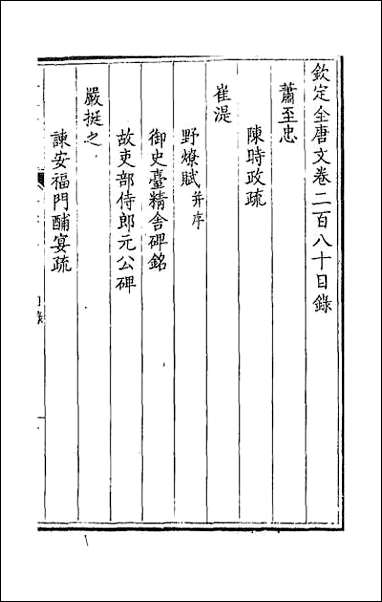 欽定全唐文卷二百八十目錄
蕭至忠
陳時政疏
崔湜
野燎賦并序
御史臺精舍碑銘
故吏部侍郎元公碑
嚴挺之
諫安福門酺宴疏